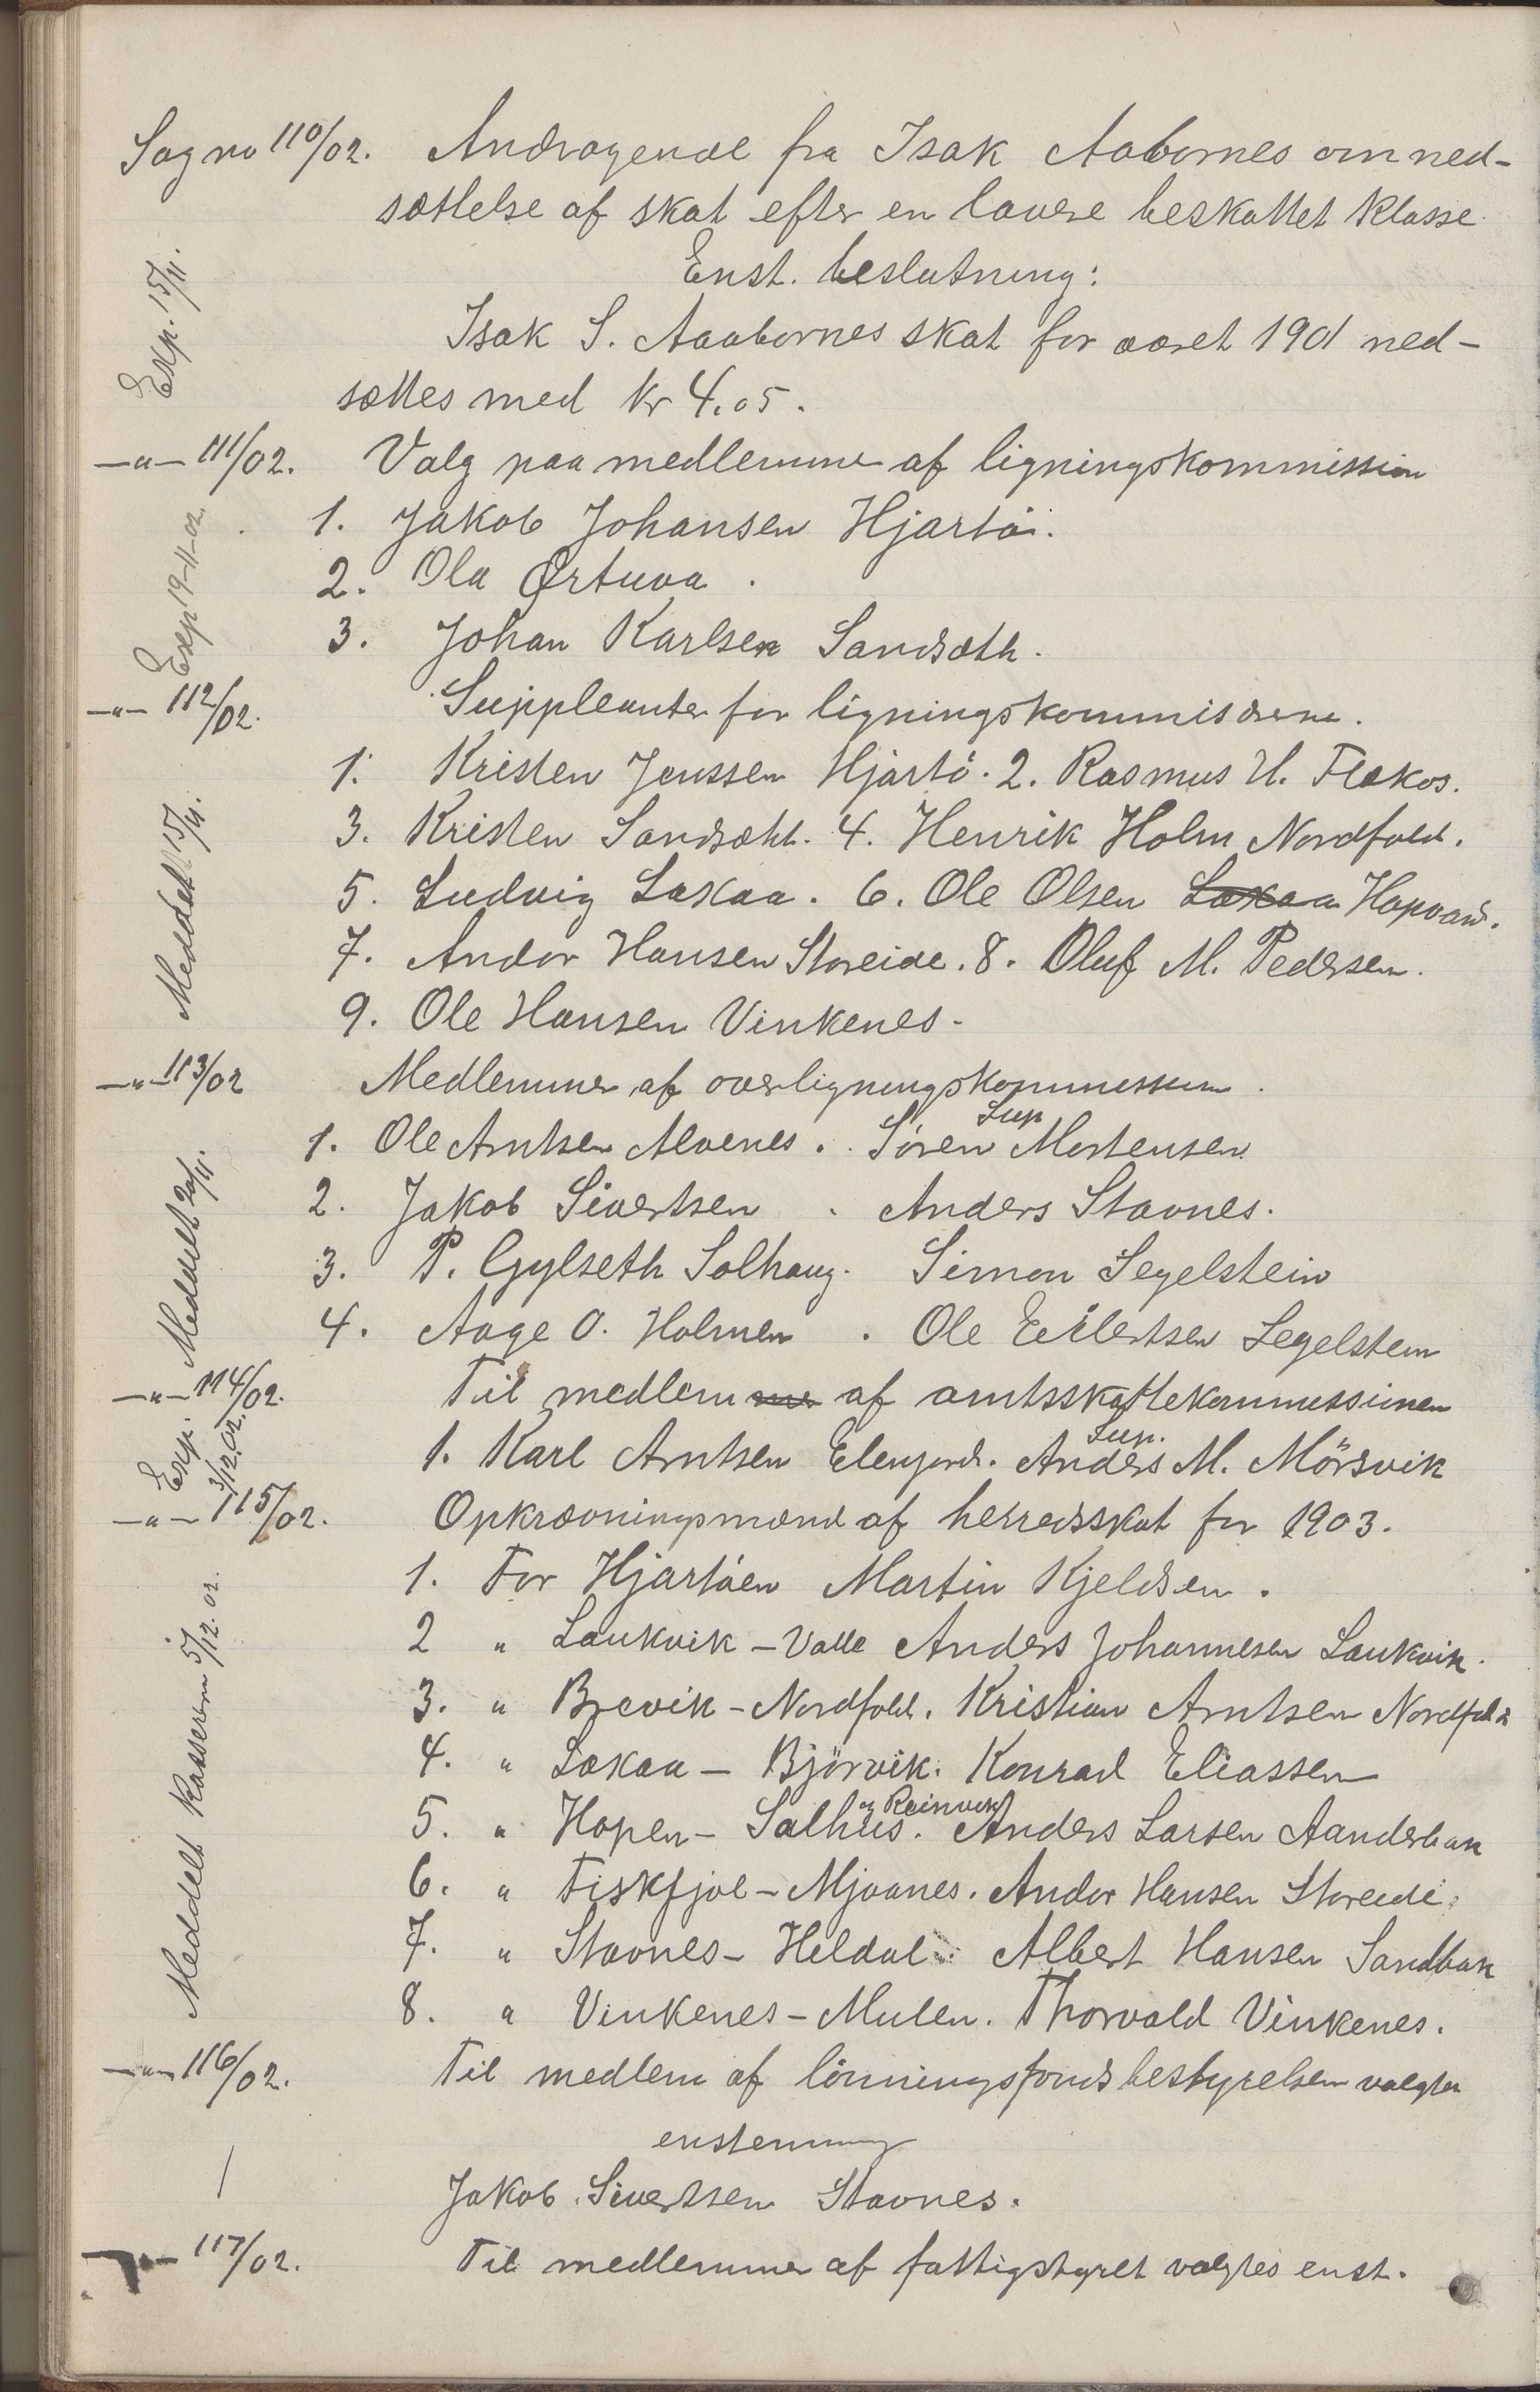 Sag no 110/02. Andragende fra Isak Aabornes om ned-
sættelse af skat efter en lavere beskattet klasse
Enst. beslutning:
Exp. 15/11.
Isak S. Aaabornes skat for aaret 1901 ned-
sættes med kr 4.05.
-"- 111/02. Valg paa medlemmer af ligningskommission
Exp 19-11-02.
1. Jakob Johansen Hjartöi.
2. Ola Ørtuva.
3. Johan Karlsen Sandsæth.
-"- 112/02. Suppleanter for
1. Kristen Jenssen Hjartö. 2. Rasmus H. Flekos.
Meddelt 15/11.
3. Kristen Sandsæht. 4. Henrik Holm Nordfold.
5. Ludvig Lakaa. 6. Ole Olsen Lakaa Hopvand.
7. Andor Hansen Storeide. 8. Oluf M. Pedersen.
9. Ole Hansen Vinkenes.
-"- 113/02 Medlemmer af overligningskommission.
Sup
1. Ole Arntsen Alvenes. Sören Mortensen
Meddelt 20/11.
2. Jakob Sivertsen. Anders Stavnes.
3. P. Gylseth Solhaug. Simon Segelstein
4. Aage O. Holmen. Ole Eilertsen Segelstein
-"- 114/02. Til medlemmer af amtsskattekommissionen
Sup.
Exp. 3/12.02.
1. Karl Arntsen Elvfjord. Anders M. Mörsvik
-"- 115/02. Opkrævningsmænd af herredsskat for 1903.
Meddelt Kasseren 5/12.02.
1. For Hjartöen Martin Kjeldsen.
2 " Laukvik - Valle Anders Johannesen Laukvik.
3. " Brevik - Nordfold. Kristian Arntsen Nordfold
4. " Lakaa - Björvik. Konrad Eliassen
og Reinvik
5. " Hopen - Salhus. Anders Larsen Aanderbak
6. " Fiskfjol - Mjovnes. Andor Hansen Storeide.
7. " Stavnes - Heldal. Albert Hansen Sandbak
8. " Vinkenes - Mulen. Thorvald Vinkenes.
-"- 116/02. Til medlem af lönningsfondsbestyrelsen valgtes
enstemmig
Jakob Sivertsen Stavnes.
-"- 117/02. Til medlemmer af fattigstyret valgtes enst.